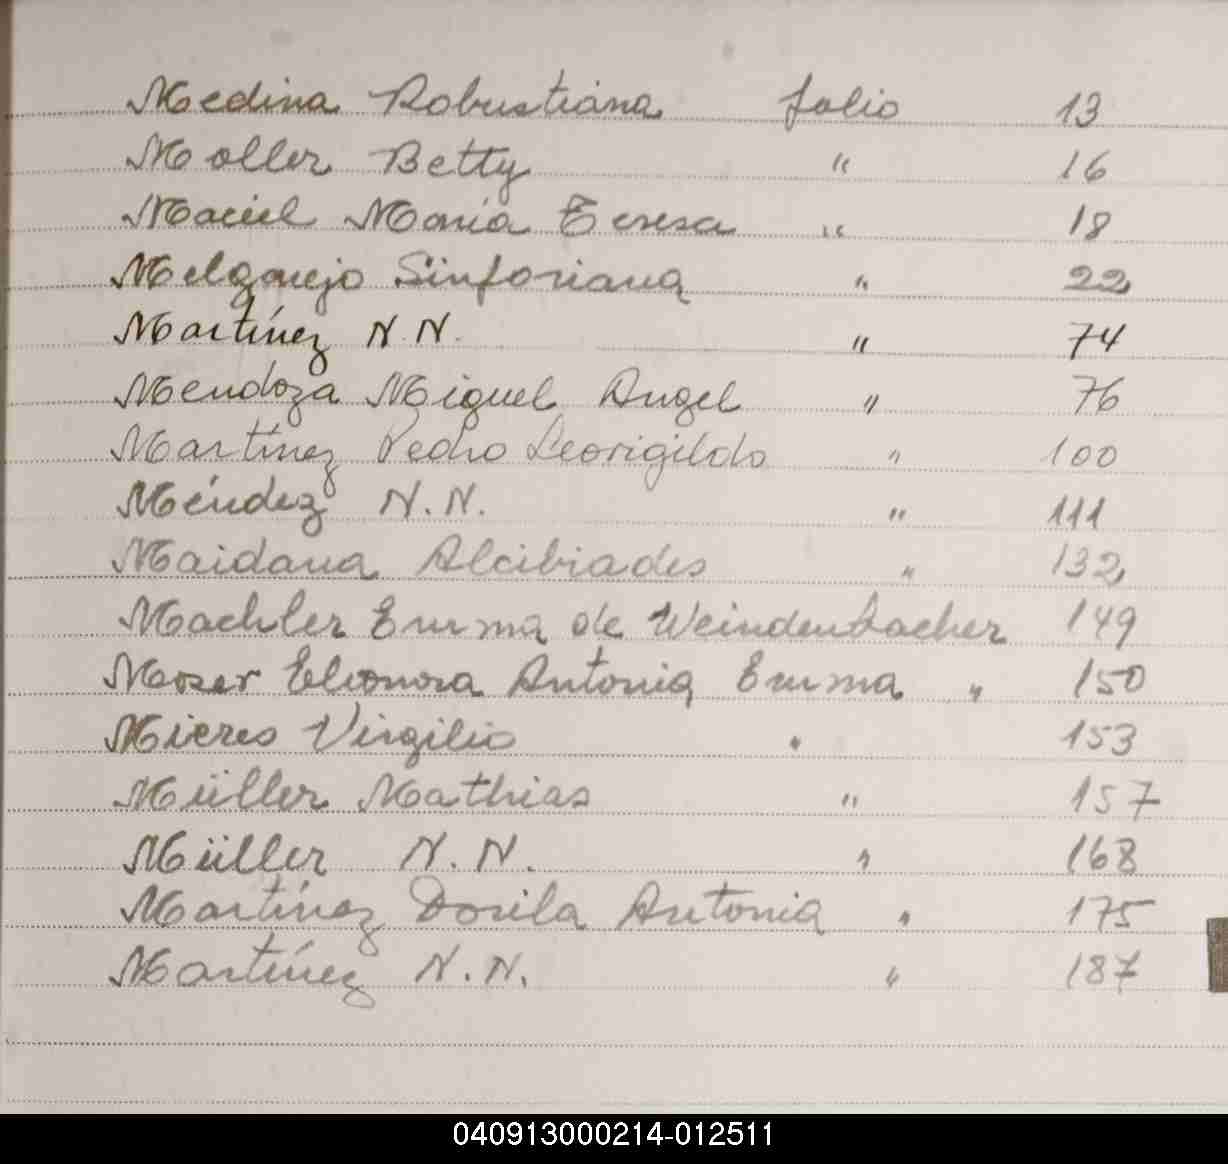 Medina Robustiana folio 13
Moller Betty " 16
Maciel María Teresa " 18
Melgarejo Sinforiana " 22
Martínez N.N. " 74
Mendoza Miguel Angel " 76
Martínez Pedro Leovigildo " 100
Méndez N.N. " 111
Maidana Alcibiades " 132
Maehler Emma de Weindenbacher 149
Moser Eleonora Antonia Emma " 150
Mieres Virgilio " 153
Müller Mathias " 157
Müller N.N. " 168
Martínez Dorila Antonia " 175
Martínez N.N. " 187
040913000214-012511